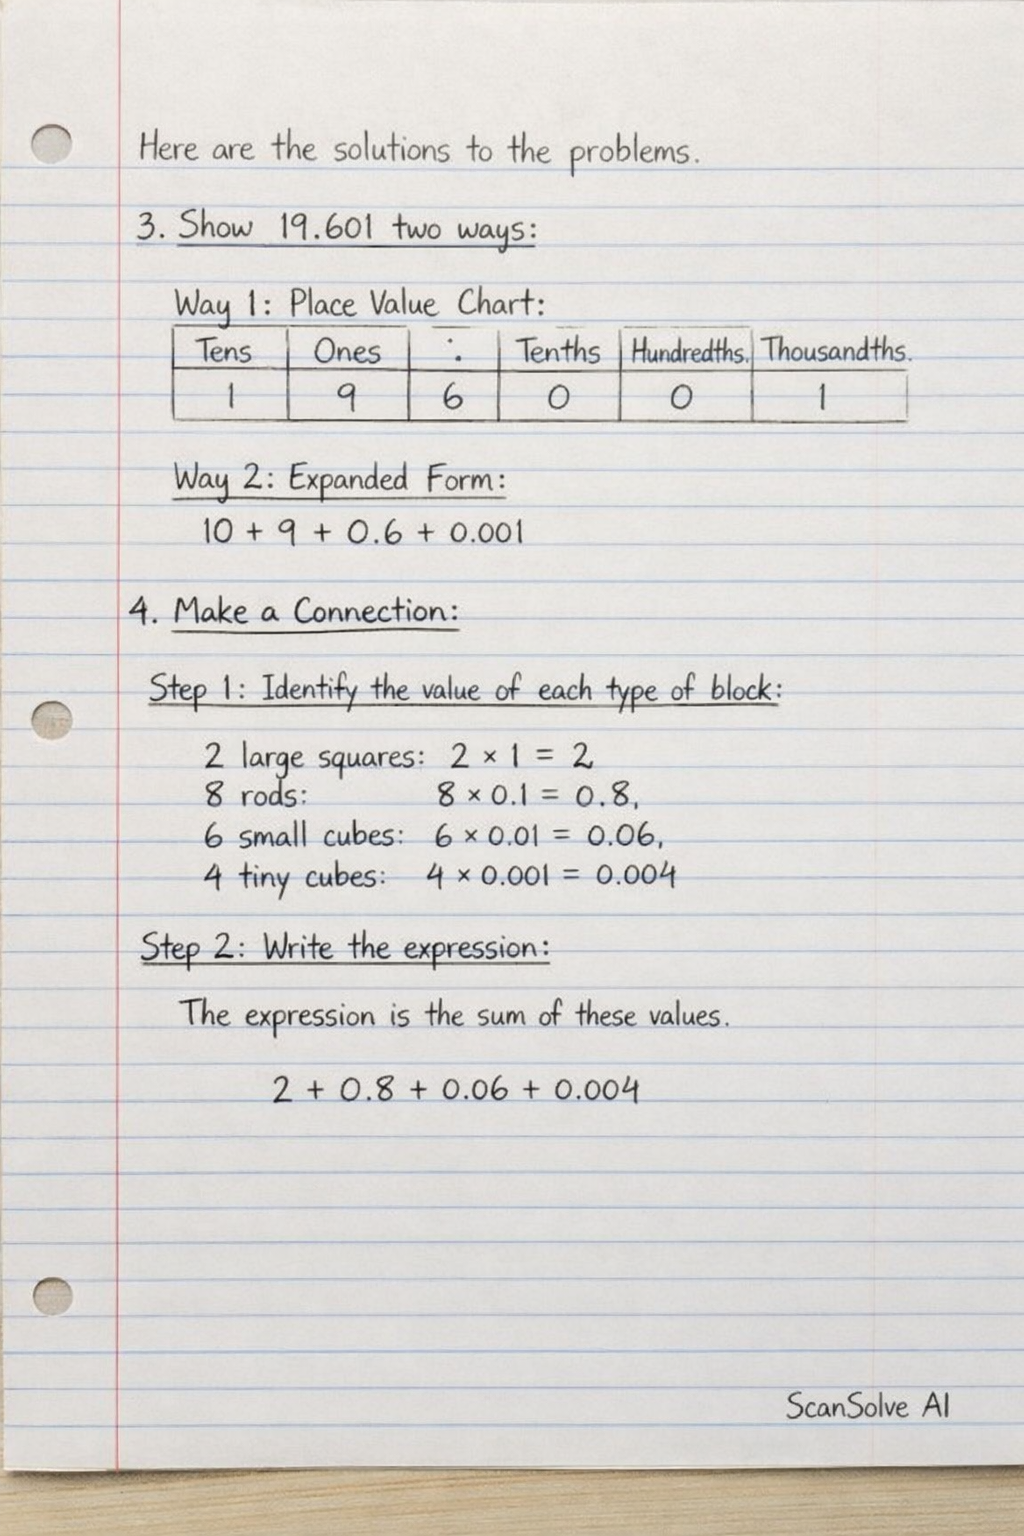 Here are the solutions to the problems.
3. Show 19.601 two ways:
Way 1: Place Value Chart:
Tens Ones . Tenths Hundredths. Thousandths.
1 9 6 0 0 1
Way 2: Expanded Form:
10 + 9 + 0.6 + 0.001
4. Make a Connection:
Step 1: Identify the value of each type of block:
2 large squares: 2 × 1 = 2
8 rods: 8 × 0.1 = 0.8,
6 small cubes: 6 × 0.01 = 0.06,
4 tiny cubes: 4 × 0.001 = 0.004
Step 2: Write the expression:
The expression is the sum of these values.
2 + 0.8 + 0.06 + 0.004
ScanSolve AI